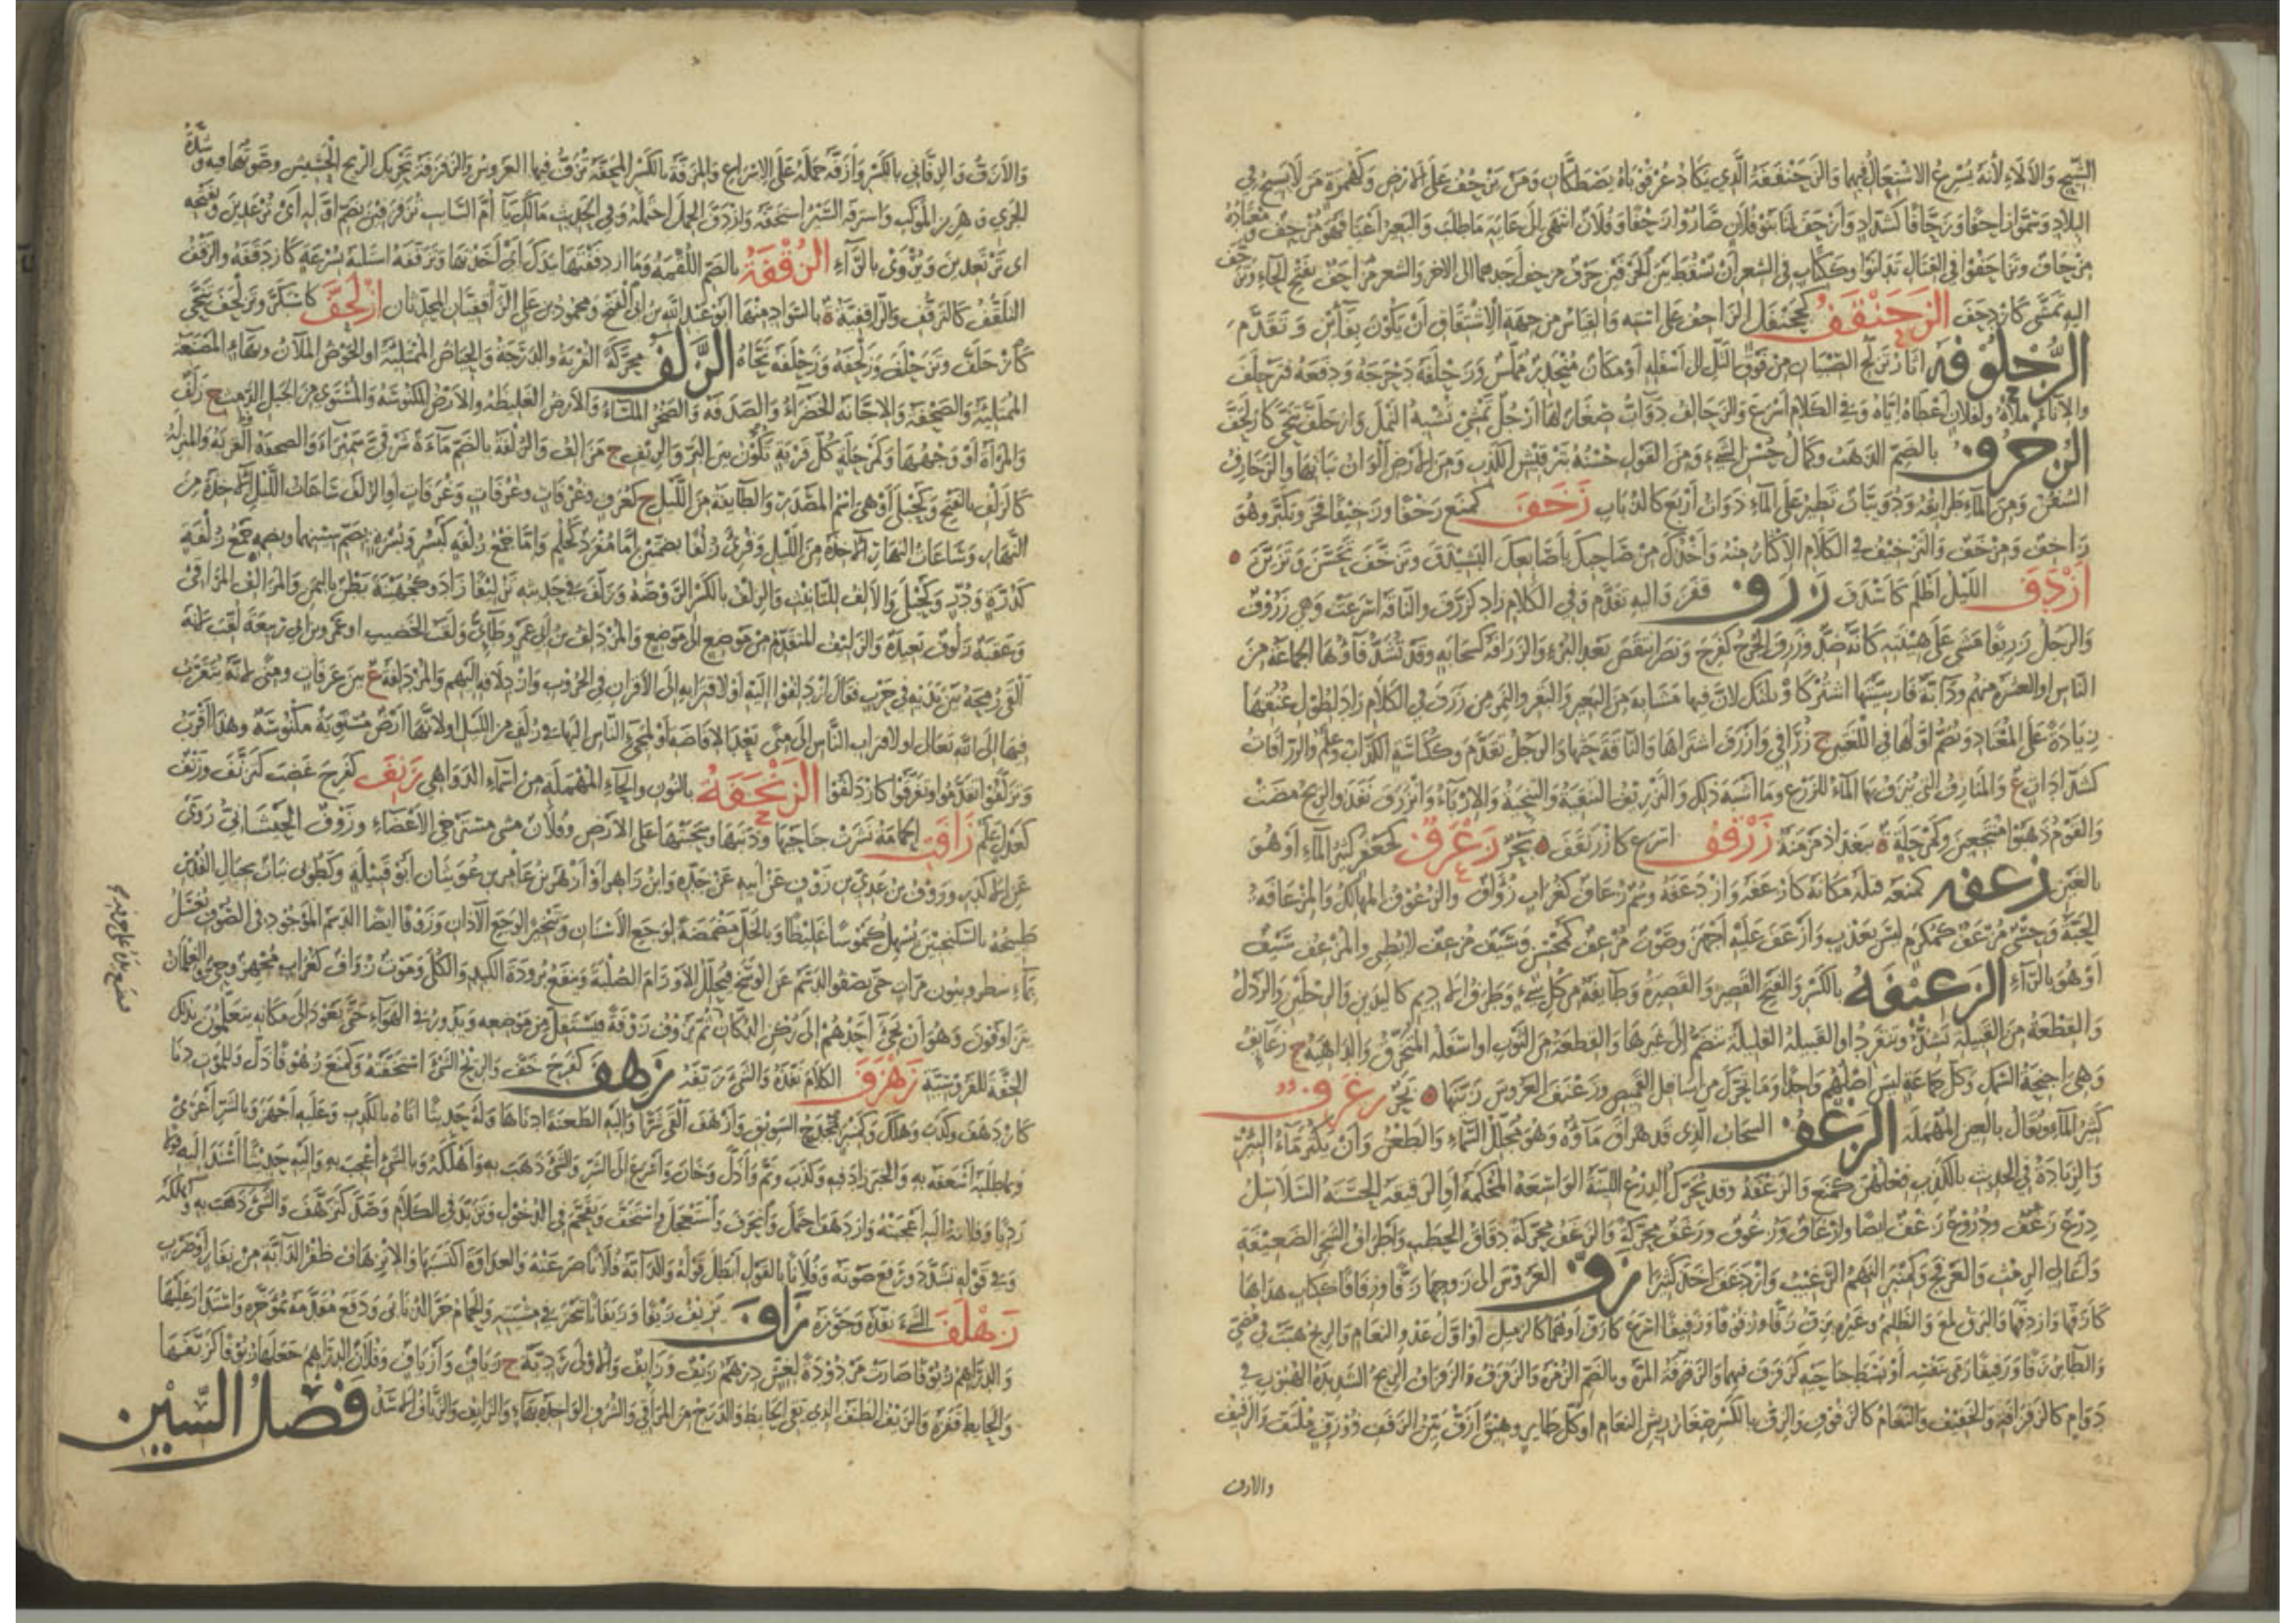 الشيح والألاء لأنه يسرع الاشتعال فيهما والزحنقفة الذي يكاد عرقوباه يصطكان ومن يزحف على الأرض وكهمزة من لا يسيح في
البلاد وسموا زاحفا وزحافا كشداد وأزحف لنا بنو فلان صاروا زحفا وفلان انتهى إلى غاية ما طلب والبعير أعيا فهو مزحف ومعتاده
مزحاف وتزاحفوا في القتال تدانوا وككتاب في الشعر أن يسقط بين الحرفين حرف فيزحف أحدهما إلى الآخر والشعر مزاحف بفتح الحاء وتزحف
إليه تمشى كازدحف الزحنقف كجحنفل الزاحف على استه والقياس من جهة الاشتقاق أن يكون بفاءين وتقدم
الزحلوفة آثار تزلج الصبيان من فوق التل إلى أسفله أو مكان منحدر مملس وزحلفه دحرجه ودفعه فتزحلف
والإناء ملأه ولفلان أعطاه إياه وفي الكلام أسرع والزحالف دواب صغار لها أرجل تمشي تشبه النمل وازحلف تنحى كازلحف
الزخرف بالضم الذهب وكمال حسن الشيء ومن القول حسنه بترقيش الكذب ومن الأرض ألوان نباتها والزخارف
السفن ومن الماء طرائقه ودويبات تطير على الماء ذوات أربع كالذباب زخف كمنع زخفا وزخيفا فخر وتكبر وهو
زاخف ومزخف والتزخيف في الكلام الإكثار منه وأخذك من صاحبك بأصابعك الشيذق وتزخف تحسن وتزين ه
أزدف الليل أظلم كأسدف زرف قفز وإليه تقدم وفي الكلام زاد كزرف والناقة أسرعت وهي زروف
والرجل زريفا مشى على هينته كأنه ضد وزرف الجرح كفرح ونصر انتقض بعد البرء والزرافة كسحابة وقد تشدد فاؤها الجماعة من
الناس أو العشرة منهم ودابة فارسيتها اشتركاو بلنك لأن فيها مشابه من البعير والبقر والنمر من زرف في الكلام زاد لطول عنقها
زيادة على المعتاد وتضم أولها في اللغتين ج زرافي وأزرف اشتراها والناقة حثها والرجل تقدم وككناسة الكذاب وعلم والزرافات
كشدادات ع والمنازف التي ينزف بها الماء للزرع وما أشبه ذلك والتزريف التنقية والتنحية والإرباء وانزرف نفذ والريح مضت
والقوم ذهبوا منتجعين وكمرحلة ة ببغداد مزرفنة زرقف أسرع كازرنقف ه بحر زعرف كجعفر كثير الماء أو هو
بالغين زعفه كمنعه قتله مكانه كازعفه وازدعفه وسم زعاف كغراب زؤاف والزعوف المهالك والمزعافة
الحية وحسي مزعف كمكرم ليس بعذب وأزعف عليه أجهز وموت مزعف كمحسن وسيف مزعف لا يطني والمزعف سيف
أو هو بالراء الزعنفة بالكسر والفتح القصير والقصيرة وطائفة من كل شيء وطرف الأديم كاليدين والرجلين والرذل
والقطعة من القبيلة تشذ وتنفرد أو القبيلة القليلة تنضم إلى غيرها والقطعة من الثوب أو أسفله المتخرق والداهية ج زعانف
وهي أجنحة السمك وكل جماعة ليس أصلهم واحدا وما تحرك من أسافل القميص وزعنف العروس زينها ه بحر زغرف
كثير الماء ويقال بالعين المهملة الزغف السحاب الذي قد هراق ماؤه وهو مجلل السماء والطعن وأن يكثر ماء البئر
والزيادة في الحديث بالكذب فعلهن كمنع والزغفة وقد تحرك الدرع اللينة الواسعة المحكمة أو الرقيقة الحسنة السلاسل
درع زغف ودروع زغف أيضا وأزغاف وزغوف وزغف محركة والزغف محركة دقاق الحطب وأطراف الشجر الضعيفة
وأعالي الرمث والعرفج وكمنبر النهم الرغيب وازدغف أخذ كثيرا زف العروس إلى زوجها زفا وزفافا ككتاب هداها
كأزفها وازدفها والبرق لمع والظليم وغيره يزف زفا وزفوفا وزفيفا أسرع كأزف أو هما كالذميل أو أول عدو النعام والريح هبت في مضي
والطائر زفا وزفيفا رمى بنفسه أو بسط جناحيه كزفزف فيهما والزفة المرة وبالضم الزمرة والزفزف والزفزاف الريح الشديدة الهبوب في
دوام كالزفزافة والخفيف والنعام كالزفوف والزف بالكسر صغار ريش النعام أو كل طائر وهيق أزف بين الزفف ذو زف ملتف والزفيف
والأزف
والأزف والزفاني بالكسر وأزفه حمله على الإسراع والمزفة بالكسر المحفة تزف فيها العروس والزفزفة تحريك الريح الحشيش وصوتها فيه وشدة
الجري وهزيز الموكب واستزفه السير استخفه وازدف الحمل احتمله وفي الحديث مالك يا أم السائب تزفزفين بضم أوله أي ترعدين وبفتحه
أي ترتعدين ويروى بالراء الزقفة بالضم اللقمة وما ازدقفتها بيدك أي أخذتها وتزقفه استلبه بسرعة كازدقفه والزقف
التلقف كالتزقف والزاقفية ة بالسواد منها أبو عبد الله بن أبي الفتح ومحمود بن علي الزاقفيان المحدثان ازلحف كاسبكر وتزلحف تنحى
كازحلف وتزحلف وزلحفه وزحلفه نحاه الزلف محركة القربة والدرجة والحياض الممتلئة أو الحوض الملآن وبهاء المصنعة
الممتلئة والصحفة والإجانة الخضراء والصدفة والصخرة الملساء والأرض الغليظة والأرض المكنوسة والمستوي من الجبل الدمث ج زلف
والمرآة أو وجهها وكمرحلة كل قرية تكون بين البر والريف ج مزالف والزلفة بالضم ماءة شرقي سميراء والصحفة والقربة والمنزلة
كالزلف بالفتح وكحبلى أو هي اسم المصدر والطائفة من الليل ج كغرف وغرفات وغرفات وغرفات أو الزلف ساعات الليل الآخذة من
النهار وساعات النهار الآخذة من الليل وقرئ زلفا بضمتين إما مفرد كحلم وإما جمع زلفة كبسر وبسرة بضم سينهما وبضمه جمع زلفة
كدرة ودر وكحبلى والألف للتأنيث والزلف بالكسر الروضة وزلف في حديثه تزليفا زاد وكجهينة بطن باليمن والمزالف المراقي
وعقبة زلوف بعيدة والزليف المتقدم من موضع إلى موضع والمزدلف بن أبي عمرو طائي ولقب الخصيب أو عمرو بن أبي ربيعة لقب لأنه
ألقى رمحه بين يديه في حرب فقال ازدلفوا إليه أو لاقترابه إلى الأقران في الحروب وازدلافه إليهم والمزدلفة ع بين عرفات ومنى لأنه يتقرب
فيها إلى الله تعالى أو لاقتراب الناس إلى منى بعد الإفاضة أو لمجيء الناس إليها في زلف من الليل أو لأنها أرض مستوية مكنوسة وهذا أقرب
وتزلفوا تقدموا وتفرقوا كازدلفوا الزنحفة بالنون والحاء المهملة من أسماء الدواهي زنف كفرح غضب كتزنف وزنف
كعدل علم زافت الحمامة نشرت جناحيها وذنبها وسحبتهما على الأرض وفلان مشى مسترخي الأعضاء وزوف الحبشاني روى
عن الأكدر وزوف بن عدي بن زوف عن أبيه عن جده وابن زاهر أو أزهر بن عامر بن عوبثان أبو قبيلة وكطوبى نبات بجبال القدس
طبيخه بالسكنجبين يسهل كيموسا غليظا وبالخل مضمضة لوجع الأسنان وتبخيرا لوجع الآذان وزوفا أيضا الدسم الموجود في الصوف يغسل
بماء سطروبيون مرات حتى يصفو الدسم عن الوسخ فيحلل الأورام الصلبة وينفع برودة الكبد والكلى وموت زؤاف كغراب مجهز وجوز الغلمان
يتزاوفون وهو أن يجيء أحدهم إلى ركن الدكان ثم يزوف زوفة فيستقل من موضعه ويدور في الهواء حتى يعود إلى مكانه يتعلمون بذلك
الخفة للفروسية زهزف الكلام نفذه والشيء زيفه زهف كفرح خف والريح الشيء استخفته وكمنع زهوفا ذل وللموت دنا
كازدهف وكذب وهلك وكمنبر مجدح السويق وأزهف ألقى شرا وإليه الطعنة أدناها وله حديثا أتاه بالكذب وعليه أجهز وبالشر أغرى
وبما طلبته أسعفه به والخبر زاد فيه وكذب ونم وأذل وخان وأسرع إلى الشر والشيء ذهب به وأهلكه وبالشيء أعجب به وإليه حديثا أسند إليه قولا
رديا وفلانة إليه أعجبته وازدهف احتمل وانحرف واستعجل واستخف وتقحم في الدخول وتزيد في الكلام وصد كتزهف والشيء ذهب به وأهلكه
وفي قوله شدد ورفع صوته وفلانا بالقول أبطل قوله والدابة فلانا صرعته والعداوة اكتسبها والانزهاف طفر الدابة من نفار أو ضرب
زهلف الشيء نفذه وجوزه زاف يزيف زيفا وزيفانا تبختر في مشيته والحمام جر الذنابى ودفع مقدمه بمؤخره واستدار عليها
والدراهم زيوفا صارت مردودة لغش درهم زيف وزائف والأولى ردية ج زياف وأزياف وفلان الدراهم جعلها زيوفا كزيفها
والحائط قفزه والزيف الطنف الذي يقي الحائط والدرج من المراقي والشرف الواحدة بهاء والزائف والزياف الأسد فصل السين